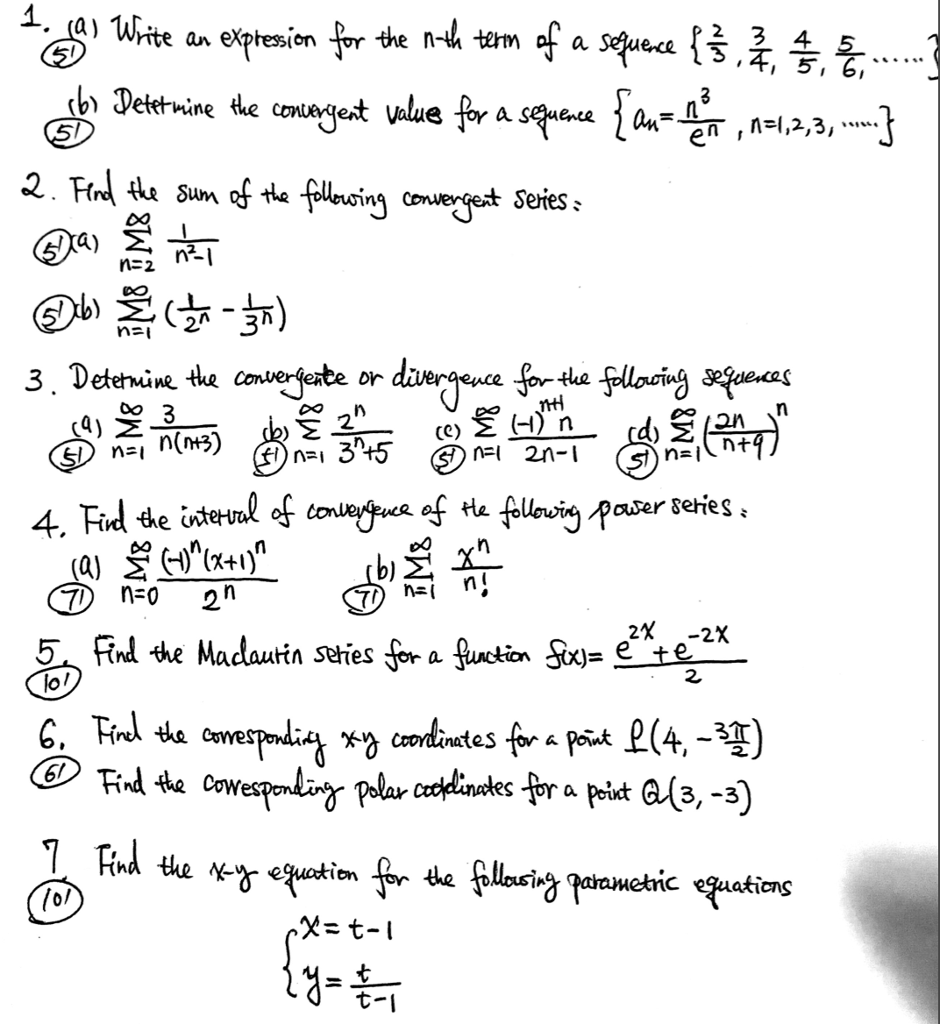 1. (a) Write an expression for the n-th term of a sequence {2/3, 3/4, 4/5, 5/6, ......}
(5')
(b) Determine the convergent value for a sequence {an = n³/eⁿ, n=1,2,3, ......}
(5')
2. Find the sum of the following convergent series:
(5') (a) ∞Σn=2 1/(n²-1)
(5') (b) ∞Σn=1 (1/2ⁿ - 1/3ⁿ)
3. Determine the convergence or divergence for the following sequences
(a) ∞Σn=1 3/(n(n+3)) (b) ∞Σn=1 2ⁿ/(3ⁿ+5) (c) ∞Σn=1 (-1)ⁿ⁺¹n/(2n-1) (d) ∞Σn=1 (2n/(n+9))ⁿ
(5') (5') (5') (5')
4. Find the interval of convergence of the following power series:
(a) ∞Σn=0 (-1)ⁿ(x+1)ⁿ/2ⁿ (b) ∞Σn=1 xⁿ/n!
(7') (7')
5. Find the Maclaurin series for a function f(x)= (e^2x + e^-2x)/2
(10')
6. Find the corresponding x-y coordinates for a point P(4, -3π/2)
(6') Find the corresponding polar coordinates for a point Q(3, -3)
7. Find the x-y equation for the following parametric equations
(10')
{x = t-1
{y = t/(t-1)